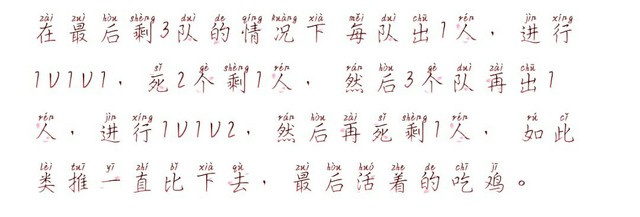 zài zuì hòu shèng duì de qíng kuàng xià měi duì chū rén jìn xíng
在最后剩3队的情况下每队出1人，进行
sǐ gè shèng rén rán hòu gè duì zài chū
1V1V1，死2个剩1人，然后3个队再出1
rén jìn xíng rán hòu zài sǐ shèng rén rú cǐ
人，进行1V1V2，然后再死剩1人，如此
lèi tuī yī zhí bǐ xià qù zuì hòu huó zhe de chī jī
类推一直比下去，最后活着的吃鸡。